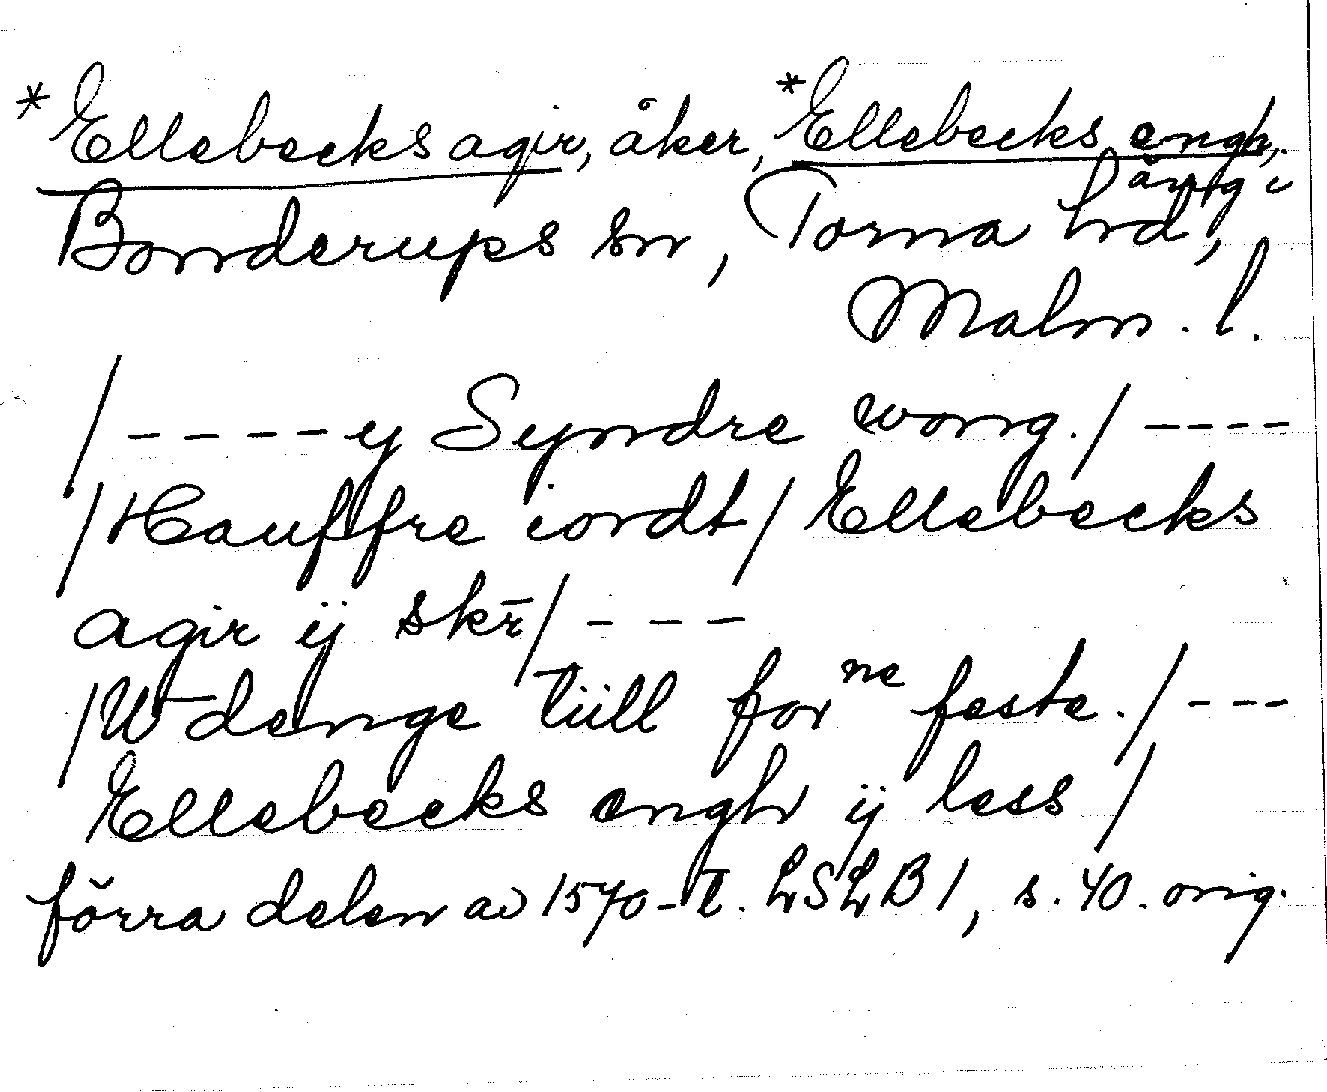 *Ellebecks agir, åker, *Ellebecks engh,
äng i
Bonderups sn, Torna hd,
Malm. l.
/ - - - - ij Syndre wong. / - - - -
/ Hauffre iordt / Ellebecks
agir ij skr̄ / - - -
/ W denge tiill forne feste. / - - -
Ellebecks engh ij less /
förra delen av 1570-t. LSLB 1, s. 40. orig.